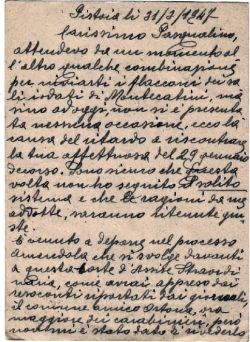 Pistoia li 31/3/1947
Carissimo Pasqualino,
attendevo da un momento al
l'altro qualche combinazione
per inviarti i flacconi dei sa
li iodati di Montecatini, ma
sino ad oggi, non si è presenta
ta nessuna occasione, ecco la
causa del ritardo a riscontrare
la tua affettuosa del 29 gennaio
decorso. Sono sicuro che questa
volta non ho seguito il solito
sistema e che le ragioni da me
addotte, saranno ritenute giu
ste.
È venuto a deporre nel processo
che si svolge davanti
a questa Corte d'Assise Straordi
naria, come avrai appreso dai
resoconti riportati dai giornali
il comune amico Ortona, ora
maggiore dei carabinieri, però
non mi è stato dato di vederlo